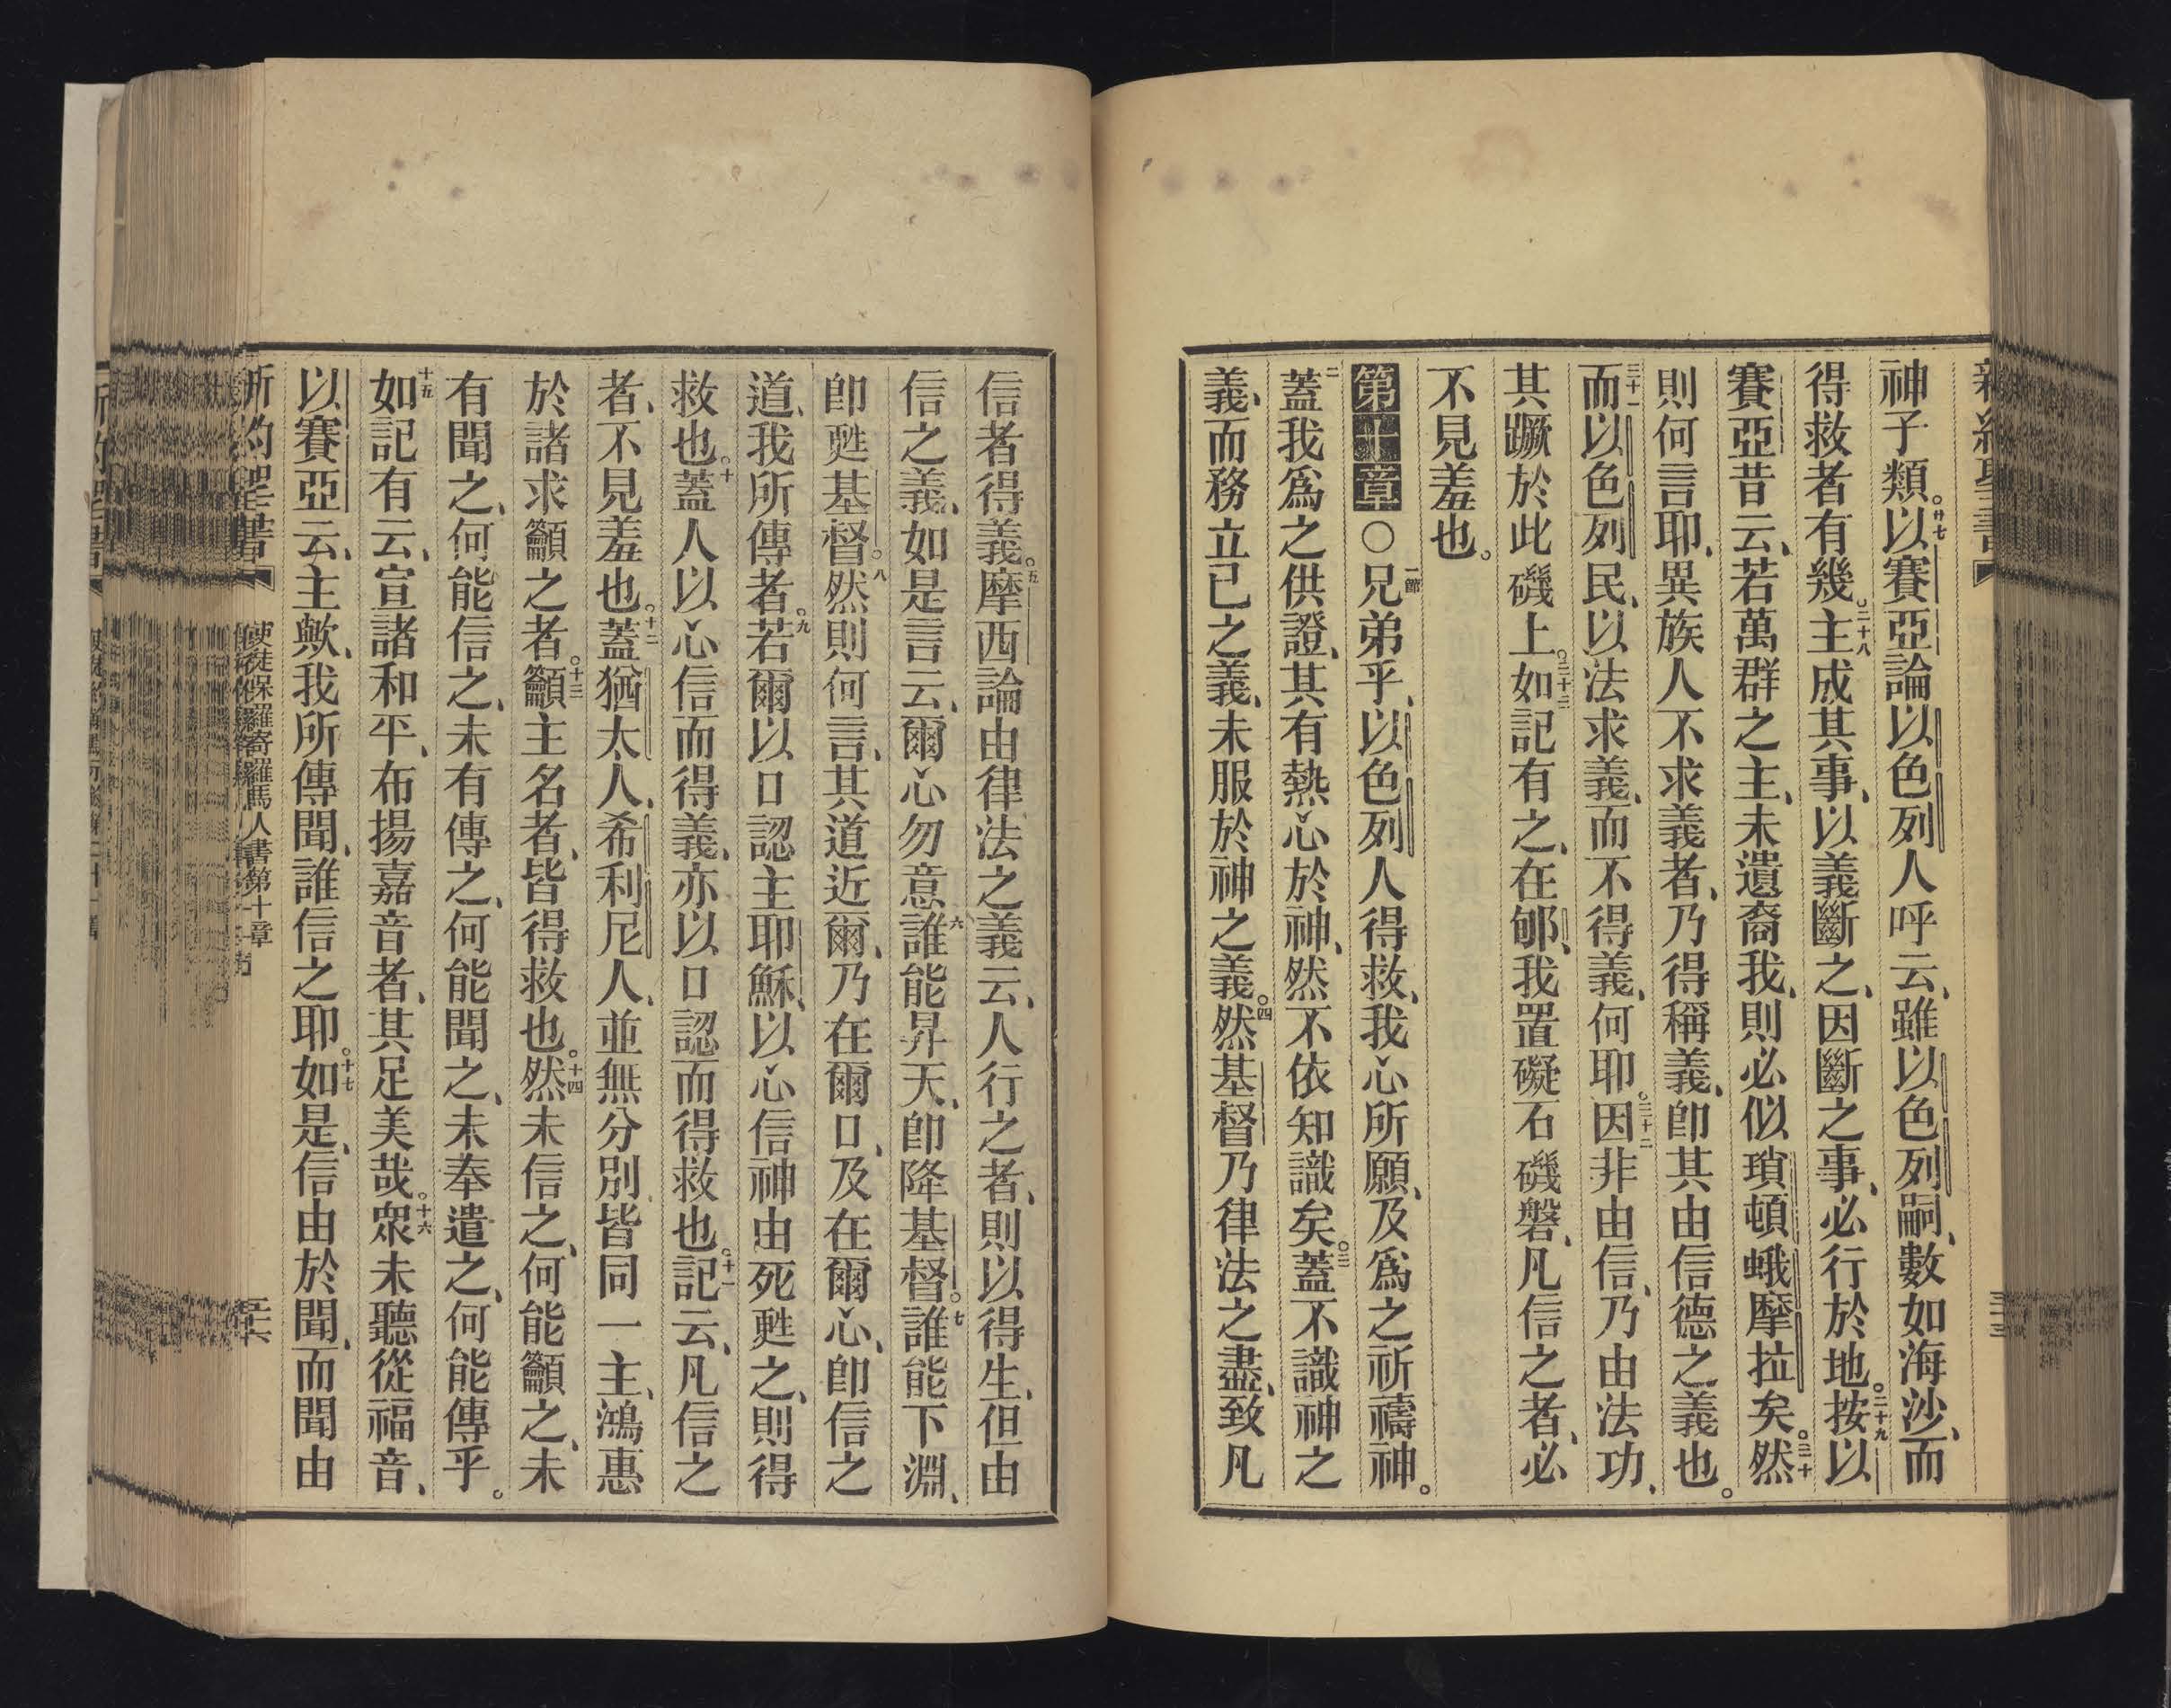 神子類。廿七以賽亞論以色列人呼云、雖以色列嗣、數如海沙、而
得救者有幾。二十八主成其事、以義斷之、因斷之事、必行於地。二十九按以
賽亞昔云、若萬群之主、未遺裔我、則必似瑣頓蛾摩拉矣。三十然
則何言耶、異族人不求義者、乃得稱義、卽其由信德之義也。
三十一而以色列民、以法求義、而不得義、何耶。三十二因非由信、乃由法功、
其蹶於此磯上。三十三如記有之、在郇、我置礙石磯磐、凡信之者、必
不見羞也。
第十章○一節兄弟乎、以色列人得救、我心所願、及爲之祈禱神。
二蓋我爲之供證、其有熱心於神、然不依知識矣。三蓋不識神之
義、而務立已之義、未服於神之義。四然基督乃律法之盡、致凡
信者得義。五摩西論由律法之義云、人行之者、則以得生、但由
信之義、如是言云、爾心勿意六誰能昇天、卽降基督。七誰能下淵、
卽甦基督。八然則何言、其道近爾、乃在爾口、及在爾心、卽信之
道、我所傳者。九若爾以口認主耶穌、以心信神由死甦之、則得
救也。十蓋人以心信而得義、亦以口認而得救也。十一記云、凡信之
者、不見羞也。十二蓋猶太人、希利尼人、並無分別、皆同一主、鴻惠
於諸求籲之者。十三籲主名者、皆得救也。十四然未信之、何能籲之、未
有聞之、何能信之、未有傳之、何能聞之、未奉遣之、何能傳乎。
十五如記有云、宣諸和平、布揚嘉音者、其足美哉。十六眾未聽從福音、
以賽亞云、主歟、我所傳聞、誰信之耶。十七如是、信由於聞、而聞由
新約聖書 使徒保羅寄羅馬人書第十章